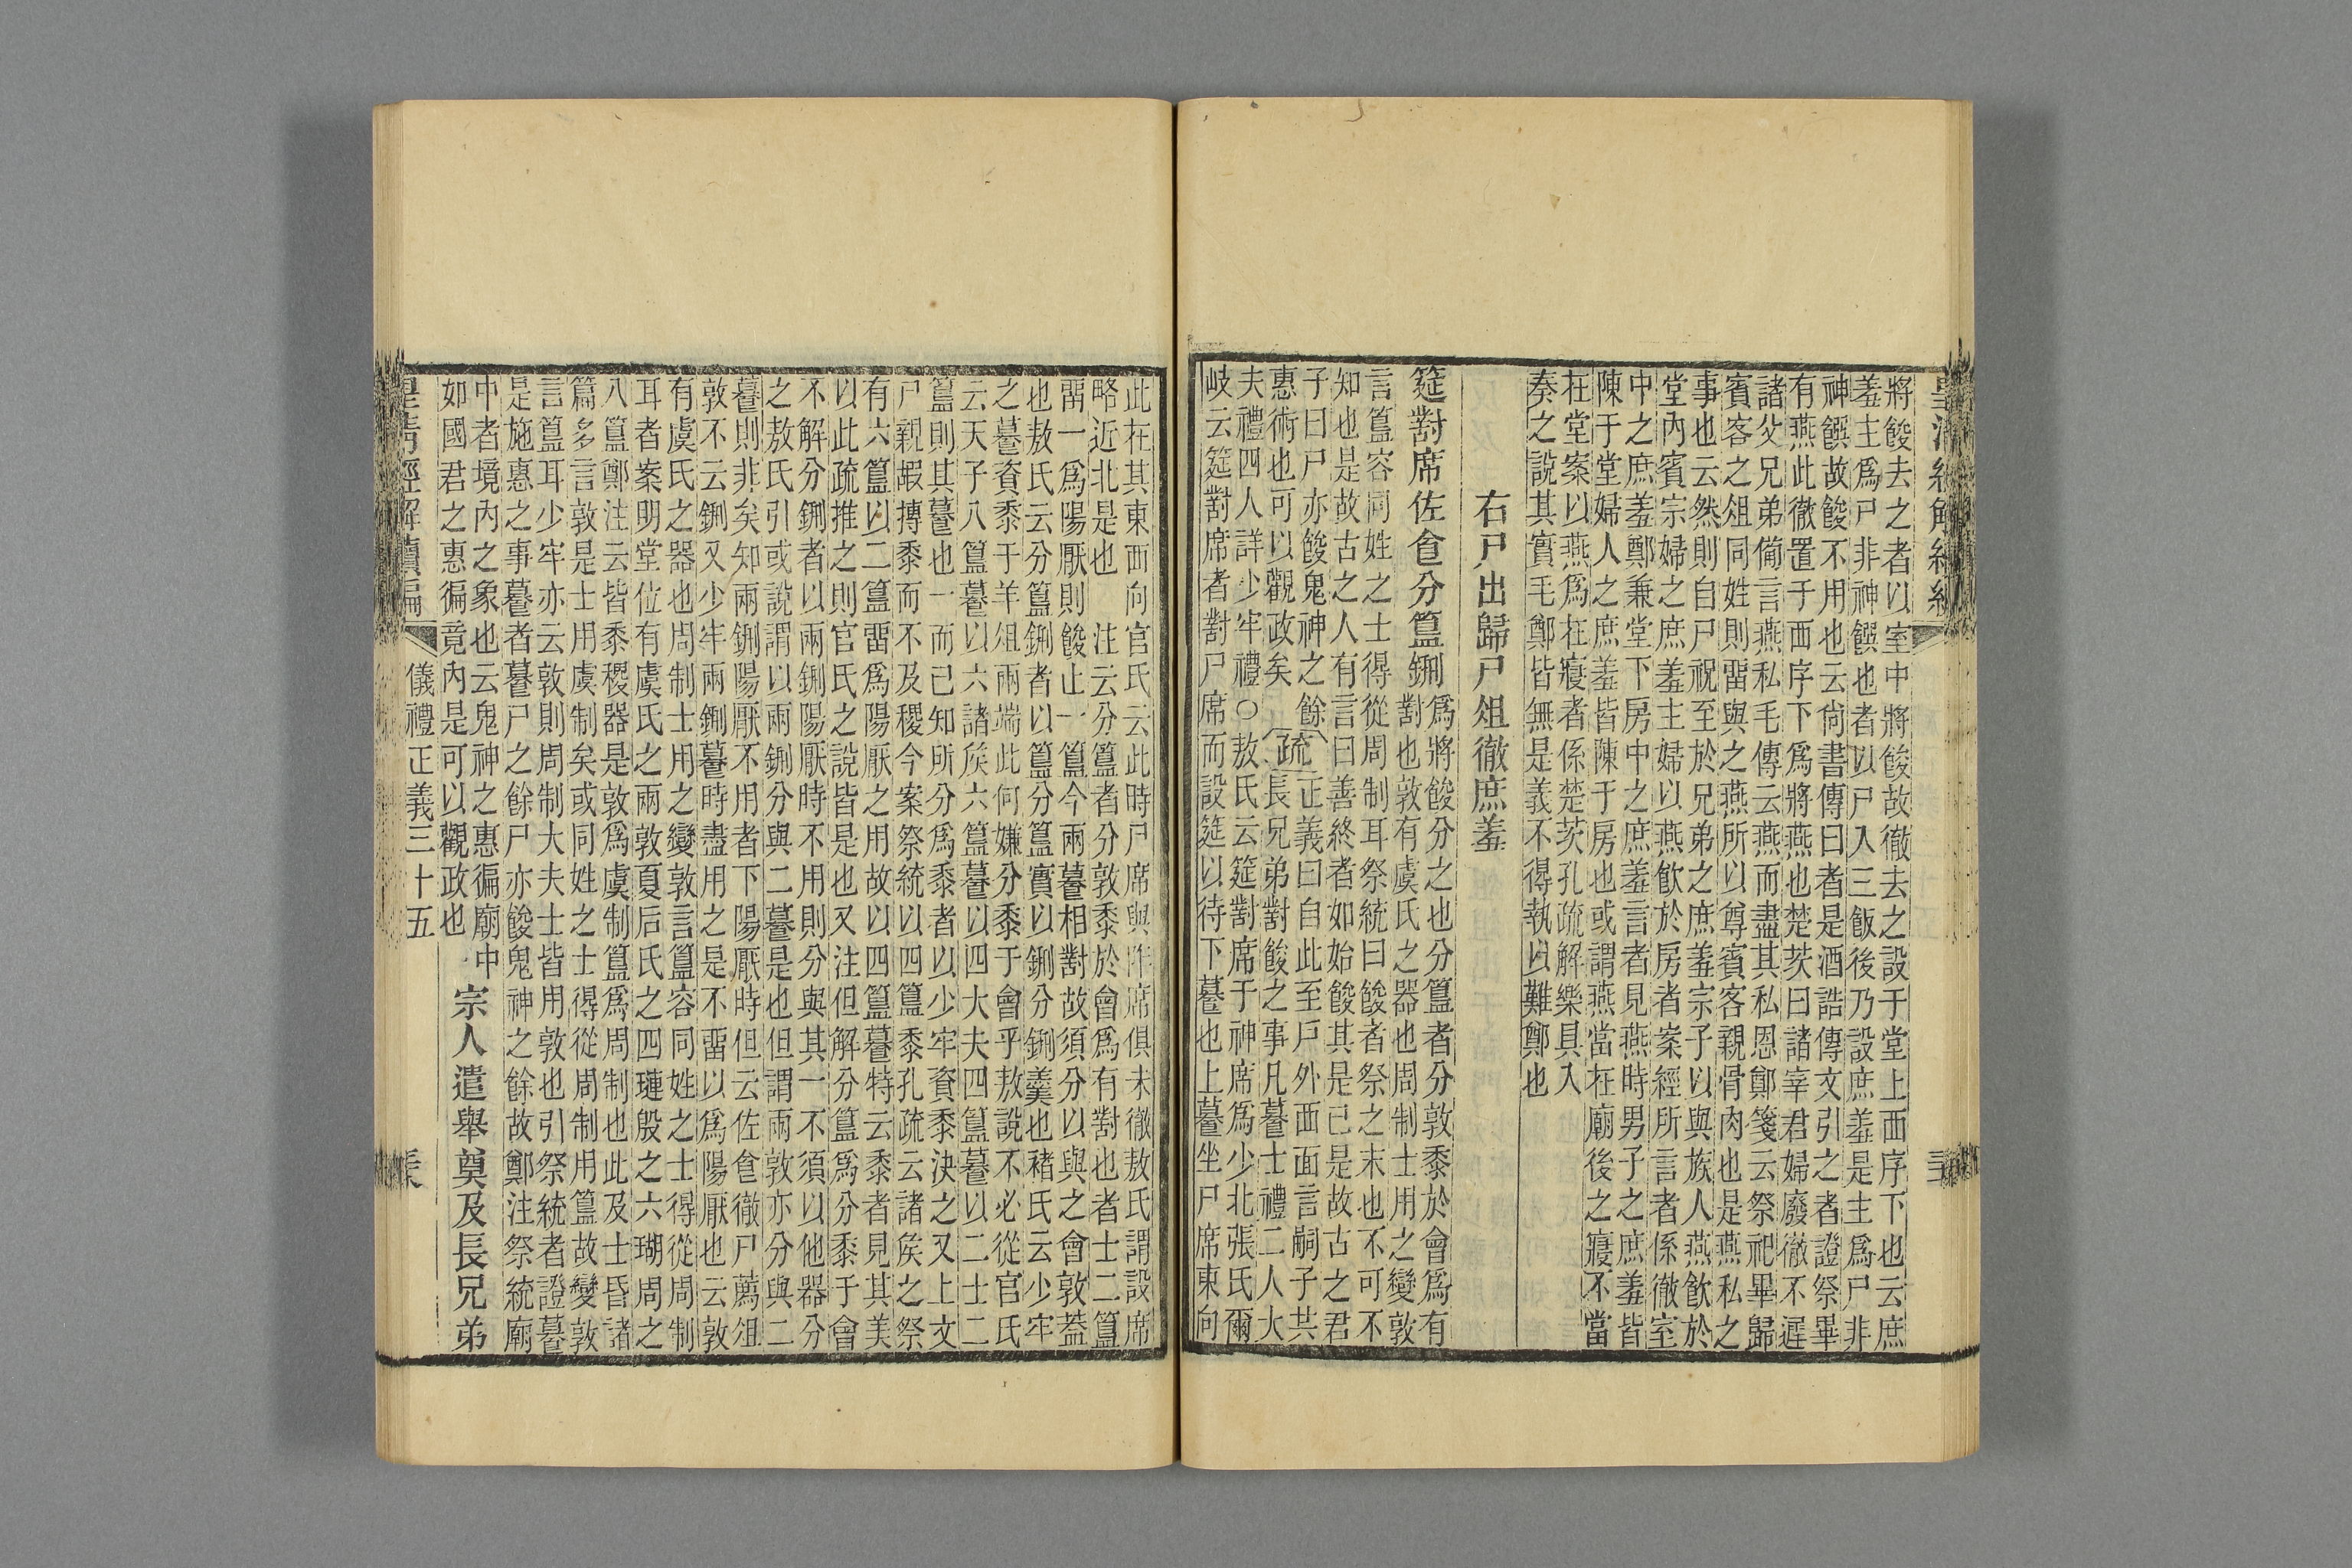 將餕去之者以室中將餕故徹去之設于堂上西序下也云庶
羞主爲尸非神饌也者以尸入三飯後乃設庶羞是主爲尸非
神饌故餕不用也云尙書傳曰者是酒誥傳文引之者證祭畢
有燕此徹置于西序下爲將燕也楚茨曰諸宰君婦廢徹不遲
諸父兄弟僃言燕私毛傳云燕而盡其私恩鄭箋云祭祀畢歸
賓客之俎同姓則畱與之燕所以尊賓客親骨肉也是燕私之
事也云然則自尸祝至於兄弟之庶羞宗子以與族人燕飮於
堂內賓宗婦之庶羞主婦以燕飮於房者案經所言者係徹室
中之庶羞鄭兼堂下房中之庶羞言者見燕時男子之庶羞皆
陳于堂婦人之庶羞皆陳于房也或謂燕當在廟後之寢不當
在堂案以燕爲在寢者係楚茨孔疏解樂具入
奏之說其實毛鄭皆無是義不得執以難鄭也
右尸出歸尸俎徹庶羞
筵對席佐食分簋鉶
爲將餕分之也分簋者分敦黍於會爲有
對也敦有虞氏之器也周制士用之變敦
言簋容同姓之士得從周制耳祭統曰餕者祭之末也不可不
知也是故古之人有言曰善終者如始餕其是已是故古之君
子曰尸亦餕鬼神之餘
惠術也可以觀政矣
疏
正義曰自此至戶外西面言嗣子共
長兄弟對餕之事凡謩士禮二人大
夫禮四人詳少牢禮○敖氏云筵對席于神席爲少北張氏爾
岐云筵對席者對尸席而設筵以待下謩也上謩坐尸席東向
此在其東西向官氏云此時尸席與阼席俱未徹敖氏謂設席
略近北是也　注云分簋者分敦黍於會爲有對也者士二簋
畱一爲陽厭則餕止一簋今兩謩相對故須分以與之會敦蓋
也敖氏云分簋鉶者以簋分簋實以鉶分鉶羹也褚氏云少牢
之謩資黍于羊俎兩端此何嫌分黍于會乎敖說不必從官氏
云天子八簋謩以六諸矦六簋謩以四大夫四簋謩以二士二
簋則其謩也一而已知所分爲黍者以少牢資黍決之又上文
尸親嘏摶黍而不及稷今案祭統以四簋黍孔疏云諸矦之祭
有六簋以二簋畱爲陽厭之用故以四簋謩特云黍者見其美
以此疏推之則官氏之說皆是也又注但解分簋爲分黍于會
不解分鉶者以兩鉶陽厭時不用則分與其一不須以他器分
之敖氏引或說謂以兩鉶分與二謩是也但謂兩敦亦分與二
謩則非矣知兩鉶陽厭不用者下陽厭時但云佐食徹尸薦俎
敦不云鉶又少牢兩鉶謩時盡用之是不畱以爲陽厭也云敦
有虞氏之器也周制士用之變敦言簋容同姓之士得從周制
耳者案明堂位有虞氏之兩敦夏后氏之四璉殷之六瑚周之
八簋鄭注云皆黍稷器是敦爲虞制簋爲周制也此及士昏諸
篇多言敦是士用虞制矣或同姓之士得從周制用簋故變敦
言簋耳少牢亦云敦則周制大夫士皆用敦也引祭統者證謩
是施惠之事謩者謩尸之餘尸亦餕鬼神之餘故鄭注祭統廟
中者境內之象也云鬼神之惠徧廟中
如國君之惠徧竟內是可以觀政也
宗人遣舉奠及長兄弟
儀禮正義三十五